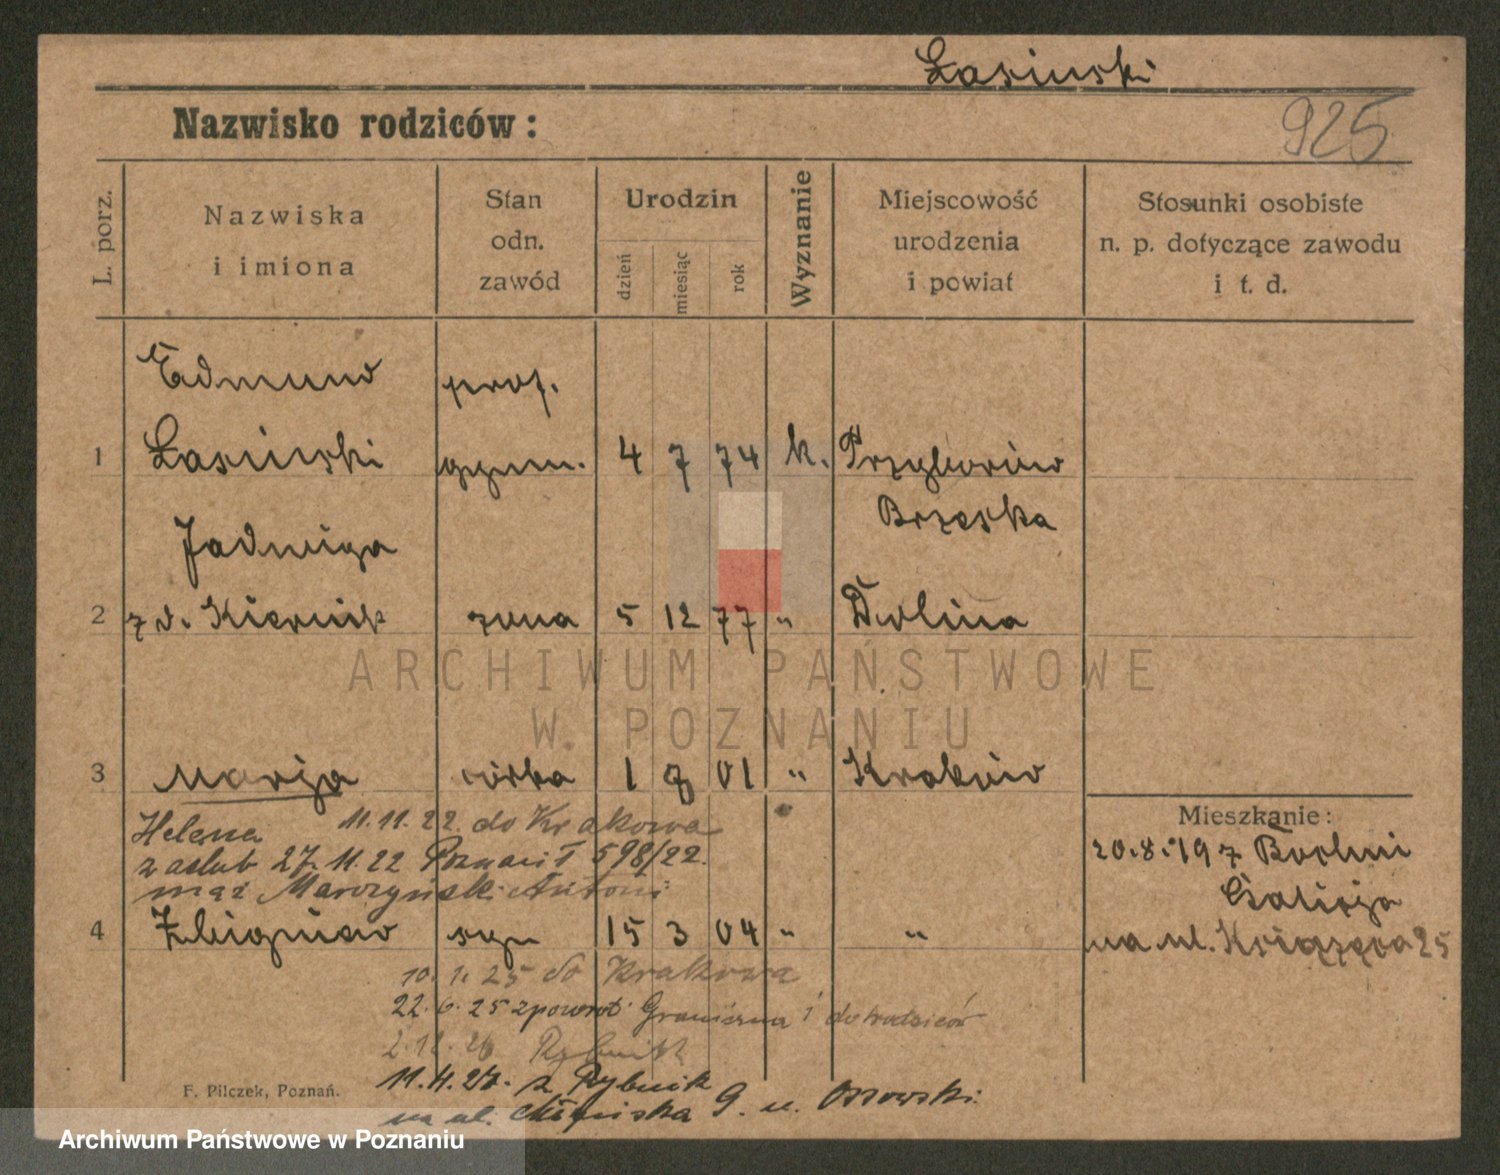 Łasiński
Nazwisko rodziców:
925
L. porz.
Nazwiska
i imiona
Stan
odn.
zawód
Urodzin
dzień
miesiąc
rok
Wyznanie
Miejscowość
urodzenia
i powiat
Stosunki osobiste
n. p. dotyczące zawodu
i t. d.
Edmund prof.
1 Łasiński gymn. 4 7 74 k. Przyborów
Brzeska
Jadwiga
2 z d. Kiernik żona 5 12 77 " Dolina
ARCHIWUM PAŃSTWOWE
W POZNANIU
3 Marja córka 1 8 01 " Kraków
Helena 11.11.22. do Krakowa
zaślub 27.11.22 Poznań I 598/22.
mąż Marczyński Antoni
4 Zbigniew syn 15 3 04 " "
Mieszkanie:
20.8.19 z Bochni
Galicja
na ul. Książęca 25
10.1.25 do Krakowa
22.6.25 zpowrot Graniczna 1 do rodziców
2.12.26 Rybnik
11.4.27. z Rybnik
na ul. 9. u. Ossowski.
F. Pilczek, Poznań.
Archiwum Państwowe w Poznaniu